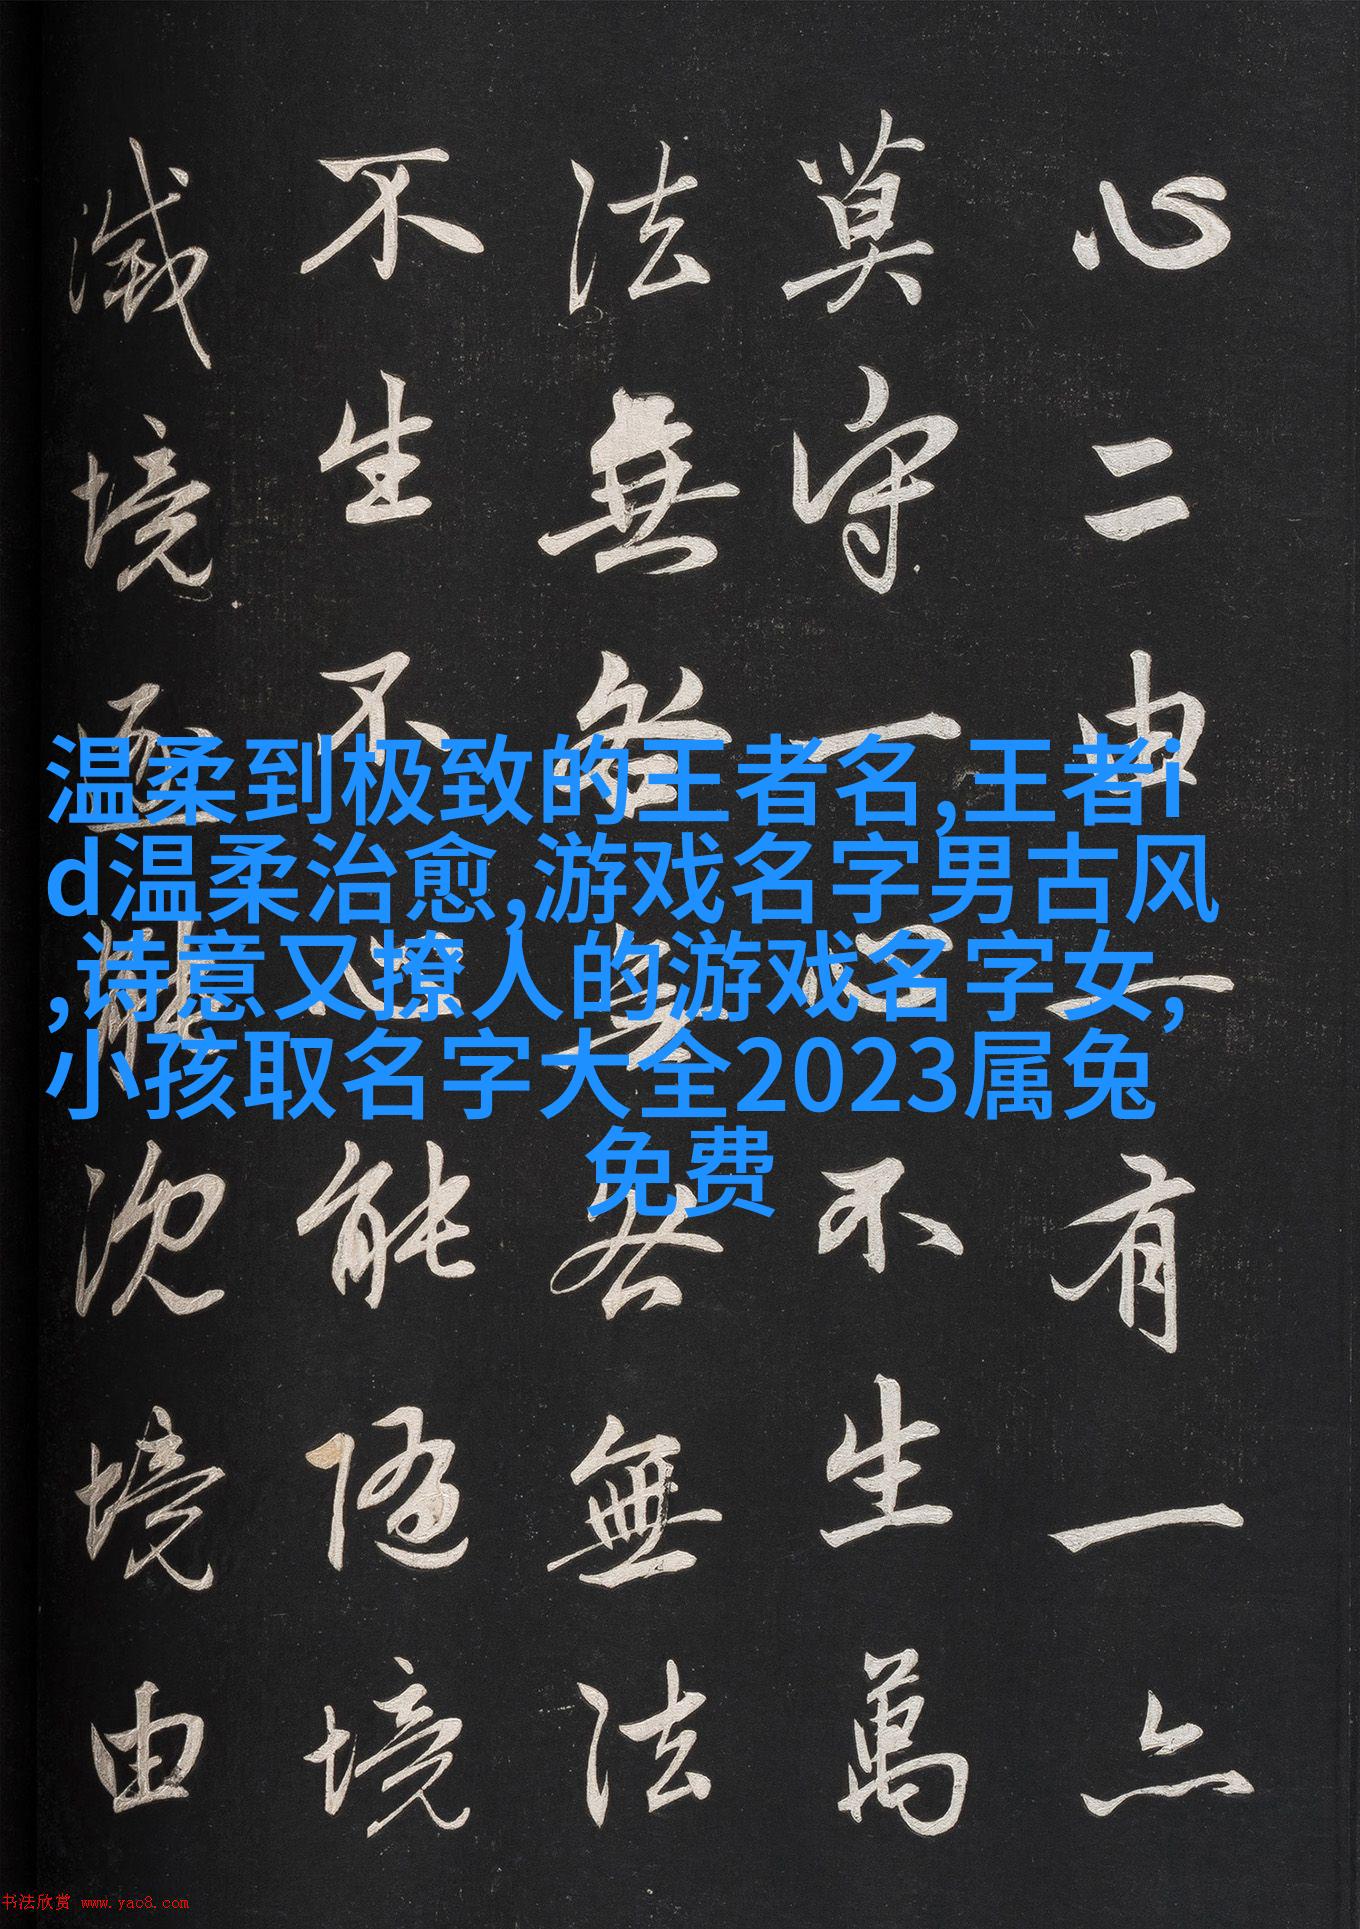 心二由一有一亦
莫守一心不生萬
法無咎無咎無法
不生不心能隨境
滅境逐能沉境由
温柔到极致的王者名,王者i
d温柔治愈,游戏名字男古风
,诗意又撩人的游戏名字女,
小孩取名字大全2023属兔
免费
书法欣赏 www.yac8.com